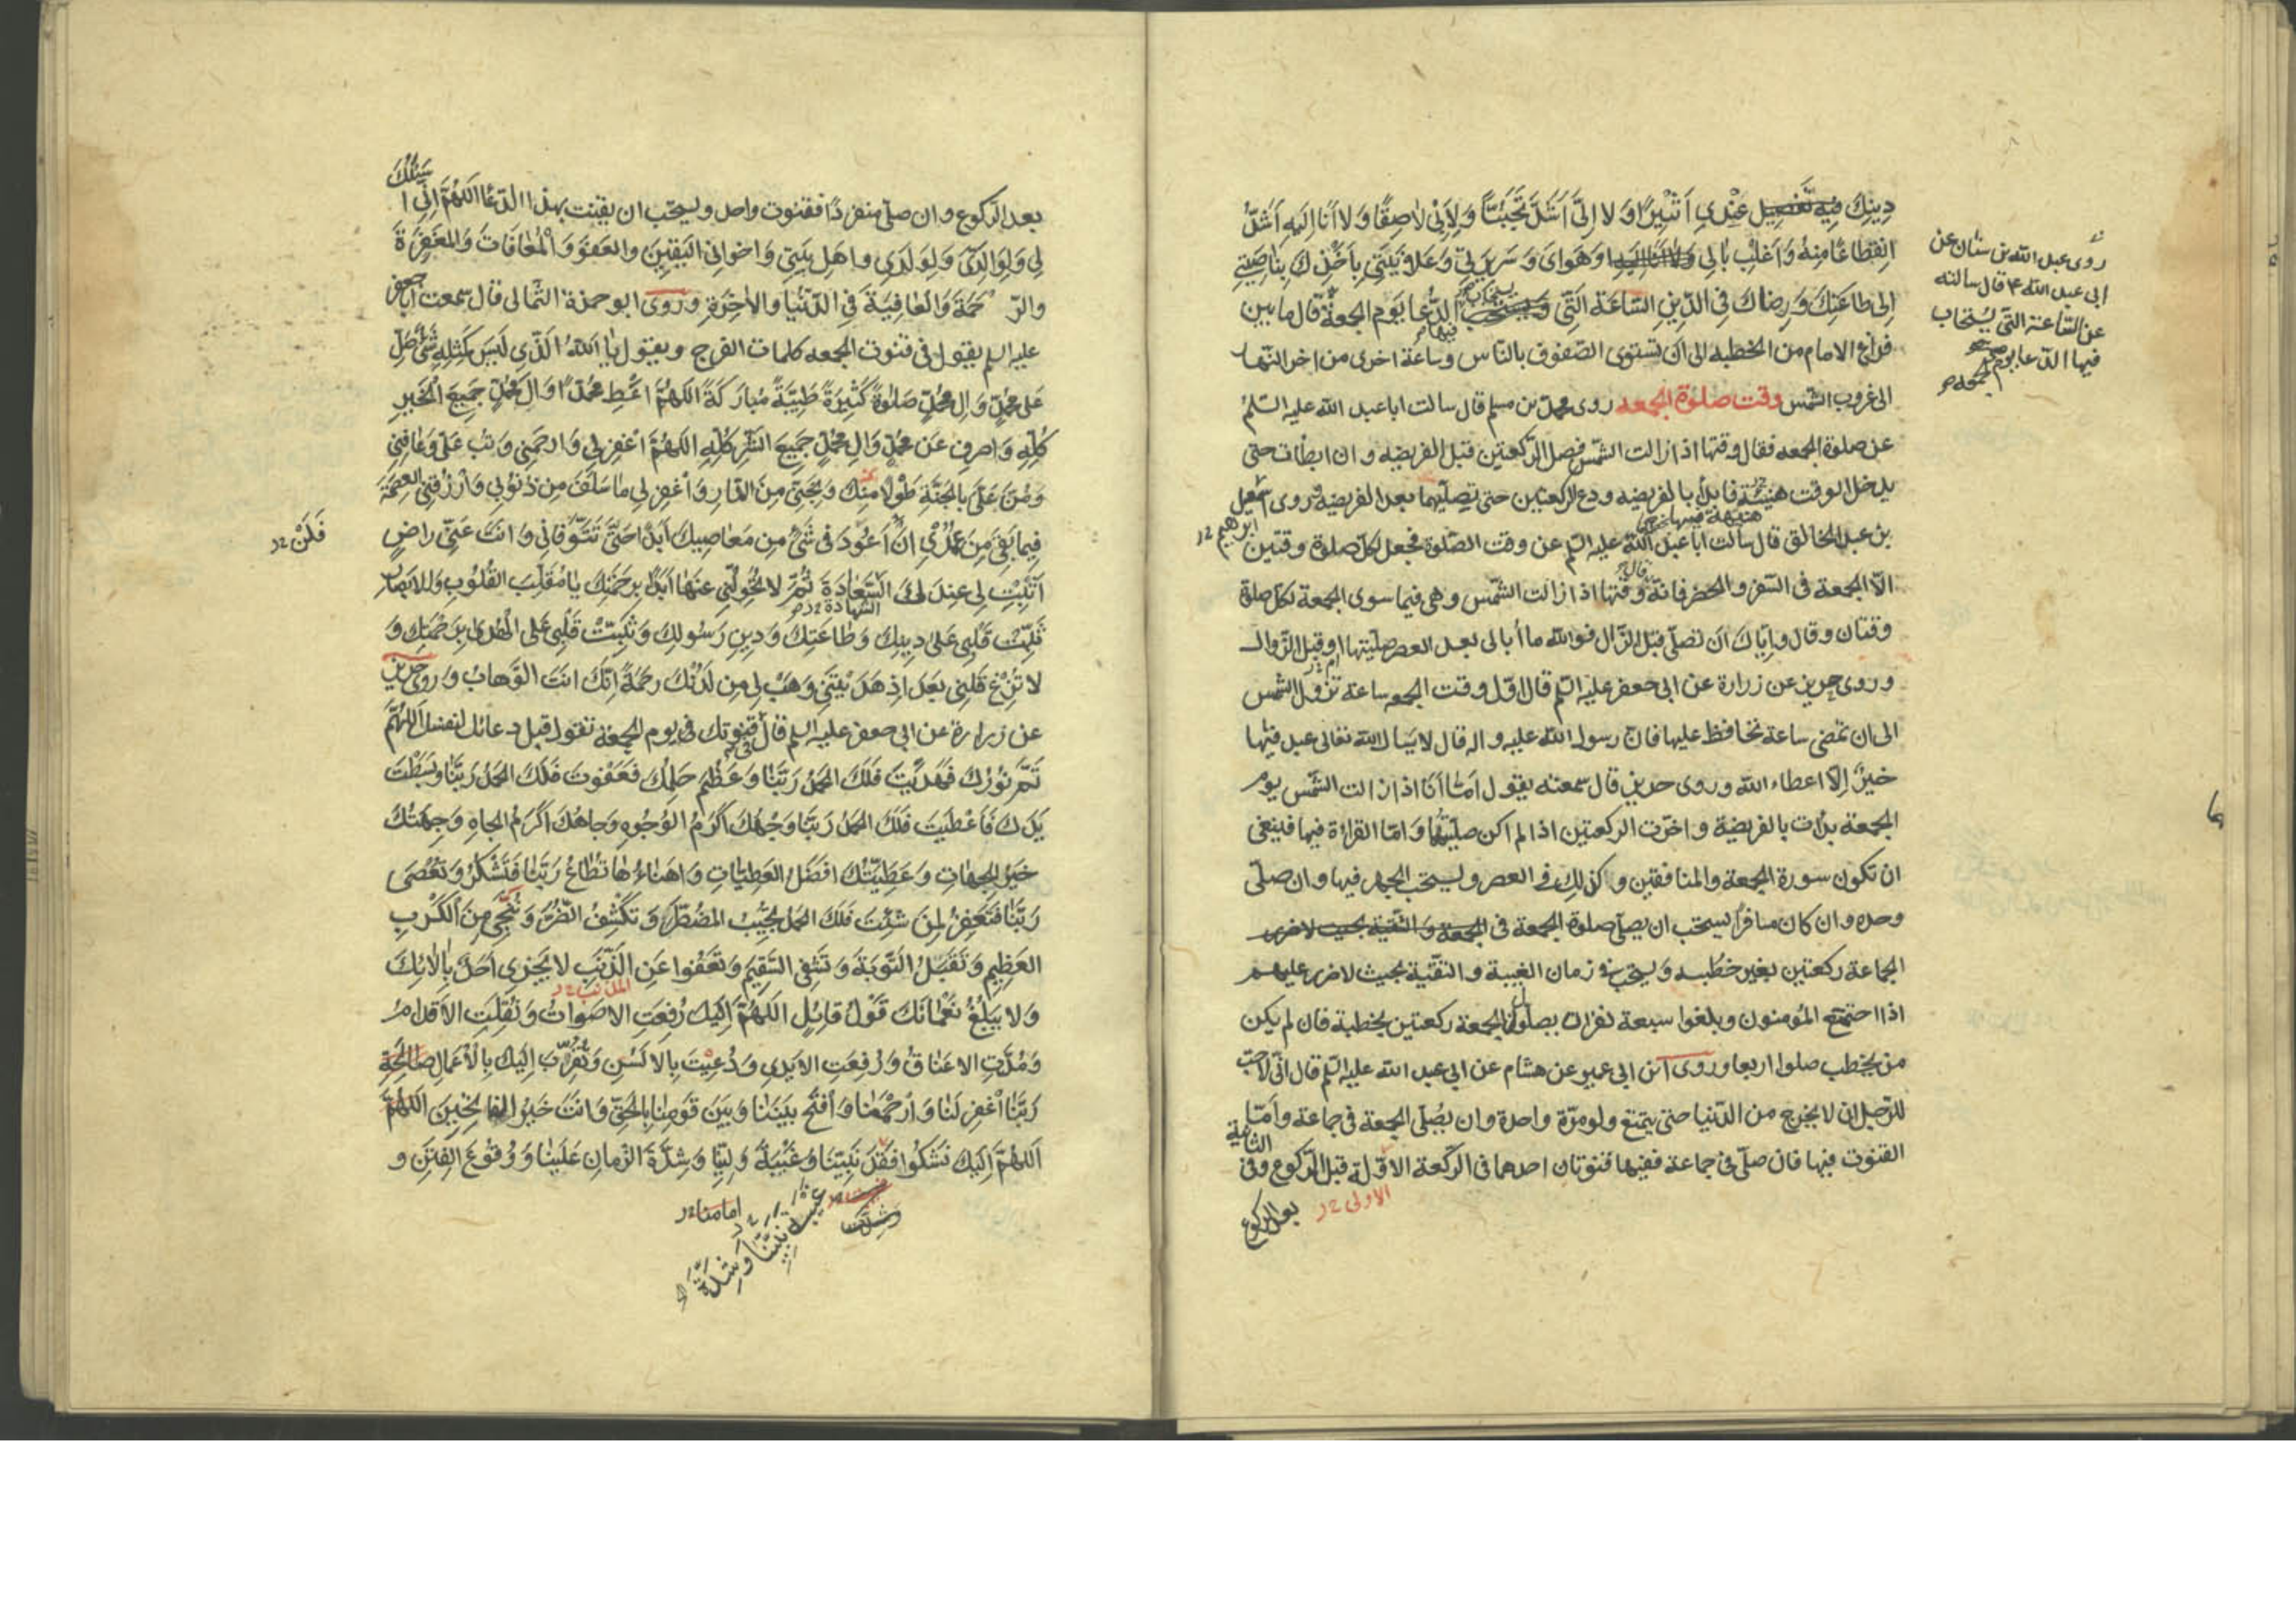 دِينِكَ فِيهِ تَفْصِيل عِنْدِي اَثِيْرًا وَلا اِلَىَّ اَشَدَّ تَحَبُّبًا وَلاَبِي لاصِقًا وَلا اَنَا اِلَيهِ اَشَدُّ
انْقِطاعًا مِنهُ وَاَغْلِبْ بَالِي وَهَوَاىَ وَسَرِيرَتِي وَعَلانِيَتِي بِاَخْذِكَ بِنَاصِيَتِي
اِلى طَاعَتِكَ وَرِضَاكَ فِي الدِّينِ السَّاعَة الَّتِي يستجاب فيها الدُّعَا يَوم الجمعة قال ما بين
فراغ الامام من الخطبه الى ان تستوى الصّفوف بالنّاس وساعة اخرى من اخر النّهار
الى غروب الشمس وقت صلوة الجمعه روى محمد بن مسلم قال سالت اباعبد الله عليه السّلم
عن صلوة الجمعه فقال وقتها اذا زالت الشّمس فصل الرّكعتين قبل الفريضه وان ابطأت حتى
يدخل الوقت هنيئة فابدأ بالفريضه ودع الركعتين حتى تصلّيهما بعد الفريضه وروى اسمعيل
بن عبد الخالق قال سالت اباعبد الله عليه السّلم عن وقت الصّلوة فجعل لكلّ صلوة وقتين
الاّ الجمعة فى السّفر والحضر فانه قال وقتها اذا زالت الشّمس وهى فيما سوى الجمعة لكلّ صلوة
وقتان وقال وايّاك ان تصلّى قبل الزّوال فوالله ما أبالى بعد العصر صلّيتها او قبل الزّوال
وروى حريز عن زرارة عن ابى جعفر عليه السّلم قال اوّل وقت الجمعه ساعة تزول الشّمس
الى ان تمضى ساعة تحافظ عليها فان رسول الله عليه واله قال لا يَسأل الله تعالى عبد فيها
خيرًا اِلّا اعطاه الله وروى حريز قال سمعته يقول اَمّا اَنَا اذا زالت الشّمس يوم
الجمعة بدأت بالفريضة واخرّت الركعتين اذا لم اكن صلّيتُهما وَامّا القراءة فيها فينبغى
ان تكون سورة الجمعة والمنافقين وكذلك فى العصر ويستحب الجهر فيها وان صلّى
وحده وان كان مسافرًا يستحب ان يصلّى صلوة الجمعة فى الجمعة وَ التّقية بحيث لاضرر
الجماعة ركعتين بغير خطبه وَيستحب فى زمان الغيبة والتقيّة بحيث لاضرر عليهم
اذا احتمتع المُومنون وبلغوا سبعة نفران يصلّوا الجمعة ركعتين بخطبة فان لم يكن
من يخطب صلوا اربعا وروى ابن ابى عمير عن هشام عن ابى عبد الله عليه السّلم قال انّى لاحبّ
للرّجل ان لا يخرج من الدّنيا حتى يتمتع ولو مرّة واحدة وان يُصَلّى الجمعة فى جماعة وَاَمّا
القنوت فيها فان صلّى فى جماعة ففيها قنوتان احدهما فى الركعة الاوّلة قبل الرّكوع وفى الثانية
الاولى
بعد الركوع
روى عبد الله بن سنان عن
ابى عبد الله ع قال سالته
عن السّاعة التى يُستجاب
فيها الدّعا يوم
الجمعه
ابرهيم
بعد الرّكوع وان صلّى منفردًا فقنوت واحد ويستحّب ان يقنت بهذا الدّعا اللهُمَّ اِنّى اَسْئَلُكَ
لِي وَلِوَالِدَىَّ وَلِوَلَدِي واهلِ بَيتِي وَاخوانِى اليَقِينَ والعَفوَ وَالْمُعَافَاتَ وَالمَغفِرَةَ
والرّحمَةَ وَالعَافِيَةَ فِي الدّنيَا والاخِرَةِ وروى ابو حمزة الثّمالى قال سمعت ابا جعفر
عليه السلم يقول فى قنوت الجمعه كلمات الفرج ويقول يَا اَللهُ الَّذِى لَيسَ كَمِثلِهِ شَىءٌ صَلِّ
عَلى محَمّدٍ وَالِ محَمّدٍ صَلوةً كَثِيرَةً طَيِّبَةً مُبَارَكَةً اللهُمَّ اعْطِ محَمّدًا وَالَ محَمّدٍ جَمِيعَ الْخَيرِ
كُلِّهِ وَاصرِف عَن محَمّدٍ وَالِ محَمّدٍ جَمِيعَ الشَّرِّ كُلِّهِ اللهُمَّ اغْفِر لِي وَارحَمنِى وَتُب عَلَىَّ وَعَافِنِى
وَمُنَّ عَلَىَّ بِالجَنَّةِ طَوْلًا مِنكَ وَنَجِّنِى مِنَ النَّارِ وَاغْفِر لِي مَا سَلَفَ مِن ذُنُوبِي وَارْزُقْنِى العِصْمَةَ
فِيمَا بَقِىَ مِنَ عُمُرْي اَنْ اَعُودَ فى شَىءٍ مِن مَعَاصِيكَ اَبَدًا حَتّىَ تَتَوَفّانِى وَانتَ عَنِّى راضٍ
اَثْبِت لِى عِندَكَ السَّعَادَةَ الشهادة ثُمَّ لا تُحَوِّلْنِى عَنهَا اَبَدًا بِرَحمَتِكَ يَا مُقَلِّبَ القُلُوبِ وَالابصَارِ
ثَبِّت قَلبِى عَلى دِينِكَ وَطَاعَتِكَ وَدِينِ رَسُولِكَ وَثَبِّتْ قَلبِى عَلى الهُدى بِرَحمَتِكَ وَ
لا تُزِغ قَلبِى بَعدَ اِذ هَدَيتَنِى وَهَبْ لِى مِن لَدُنْكَ رحمَةً اِنَّكَ انتَ الوَهابُ وَروى حريز
عن زرارة عن ابى جعفر عليه السلم قال قنوتك فى يوم الجمعة تقول قبل دعائك لنفسك اللهُمَّ
تَمَّ نُورُكَ فَهَدَيتَ فَلَكَ الحَمدُ رَبَّنَا وَعَظُمَ حِلمُكَ فَعَفَوتَ فَلَكَ الحَمدُ رَبَّنَا وَبَسَطْتَ
يَدَكَ فَاَعْطَيتَ فَلَكَ الحَمدُ رَبَّنَا وَجْهُكَ اَكرَمُ الوُجُوهِ وَجاهُكَ اكرَمُ الجاهِ وَجِهَتُكَ
خَيرُ الجِهَاتِ وَعَطِيَّتُكَ افضَلُ العَطِيَّاتِ وَاهنَاءُها تُطَاعُ رَبَّنَا فَتَشكُرُ وَتُعْصَى
رَبَّنَا فَتَغفِرُ لِمَن شِئتَ فَلَكَ الحَمدُ تُجِيبُ المُضطَرَّ وَتَكشِفُ الضُّرَّ وَتُنَجِّى مِنَ الكَرْبِ
العَظِيمِ وَتَقبَلُ التَّوبَةَ وَتَشفِى السَّقِيمَ وَتَعفُوا عَنِ الذَّنبِ المذنب لا يَجزِى اَحَدٌ بِالائِكَ
وَلا يَبلُغُ نَعْمَائَكَ قَولُ قَائِلٍ اللهُمَّ اِلَيكَ رُفِعَتِ الاصوَاتُ وَنُقِلَتِ الاَقدامُ
وَمُدَّتِ الاعنَاقُ وَرُفِعَتِ الايدِي وَدُعِيْتَ بِالالسُنِ وَتُقُرِّبَ اِلَيكَ بِالاَعمَالِ صَالِحَةِ
رَبَّنَا اغْفِر لَنَا وَارحَمنَا وَافتَح بَينَنَا وَبَينَ قَومِنَا بِالحَقِّ وَانتَ خَيرُ الفاتِحِينَ اللهُمَّ
اَللهُمَّ اِلَيكَ نَشكُوا فَقدَ نَبِيِّنَا وَغَيْبَةَ وَلِيِّنَا وَشِدَّةَ الزَّمانِ عَلَينَا وَوُقُوعَ الفِتَنِ و
امامنا